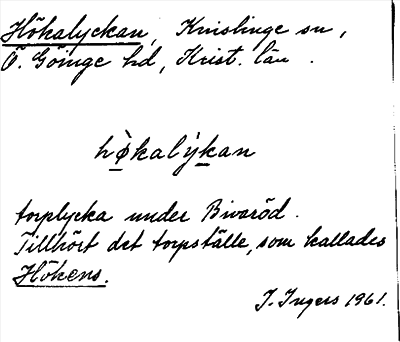 Hökalyckan, Knislinge sn,
Ö. Göinge hd, Krist. län.
hø̀kalýkan
torplycka under Bivaröd.
Tillhört det torpställe, som kallades
Hökens.
I. Ingers 1961.